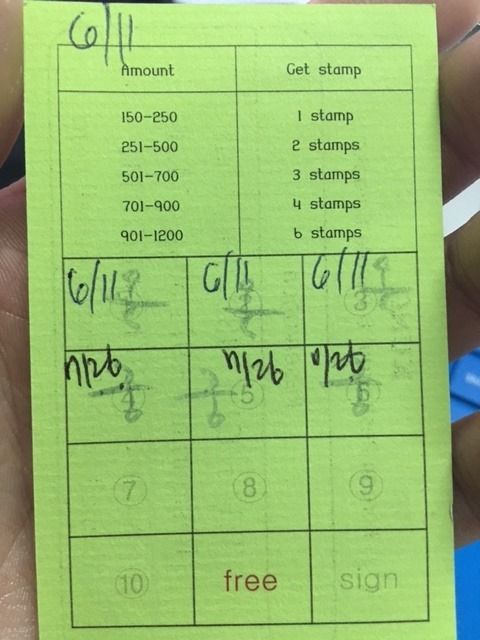 6/11
Amount Get stamp
150-250 1 stamp
251-500 2 stamps
501-700 3 stamps
701-900 4 stamps
901-1200 6 stamps
6/11 6/11 6/11
3
11/26 11/26 11/26
4 5 6
7 8 9
10 free sign